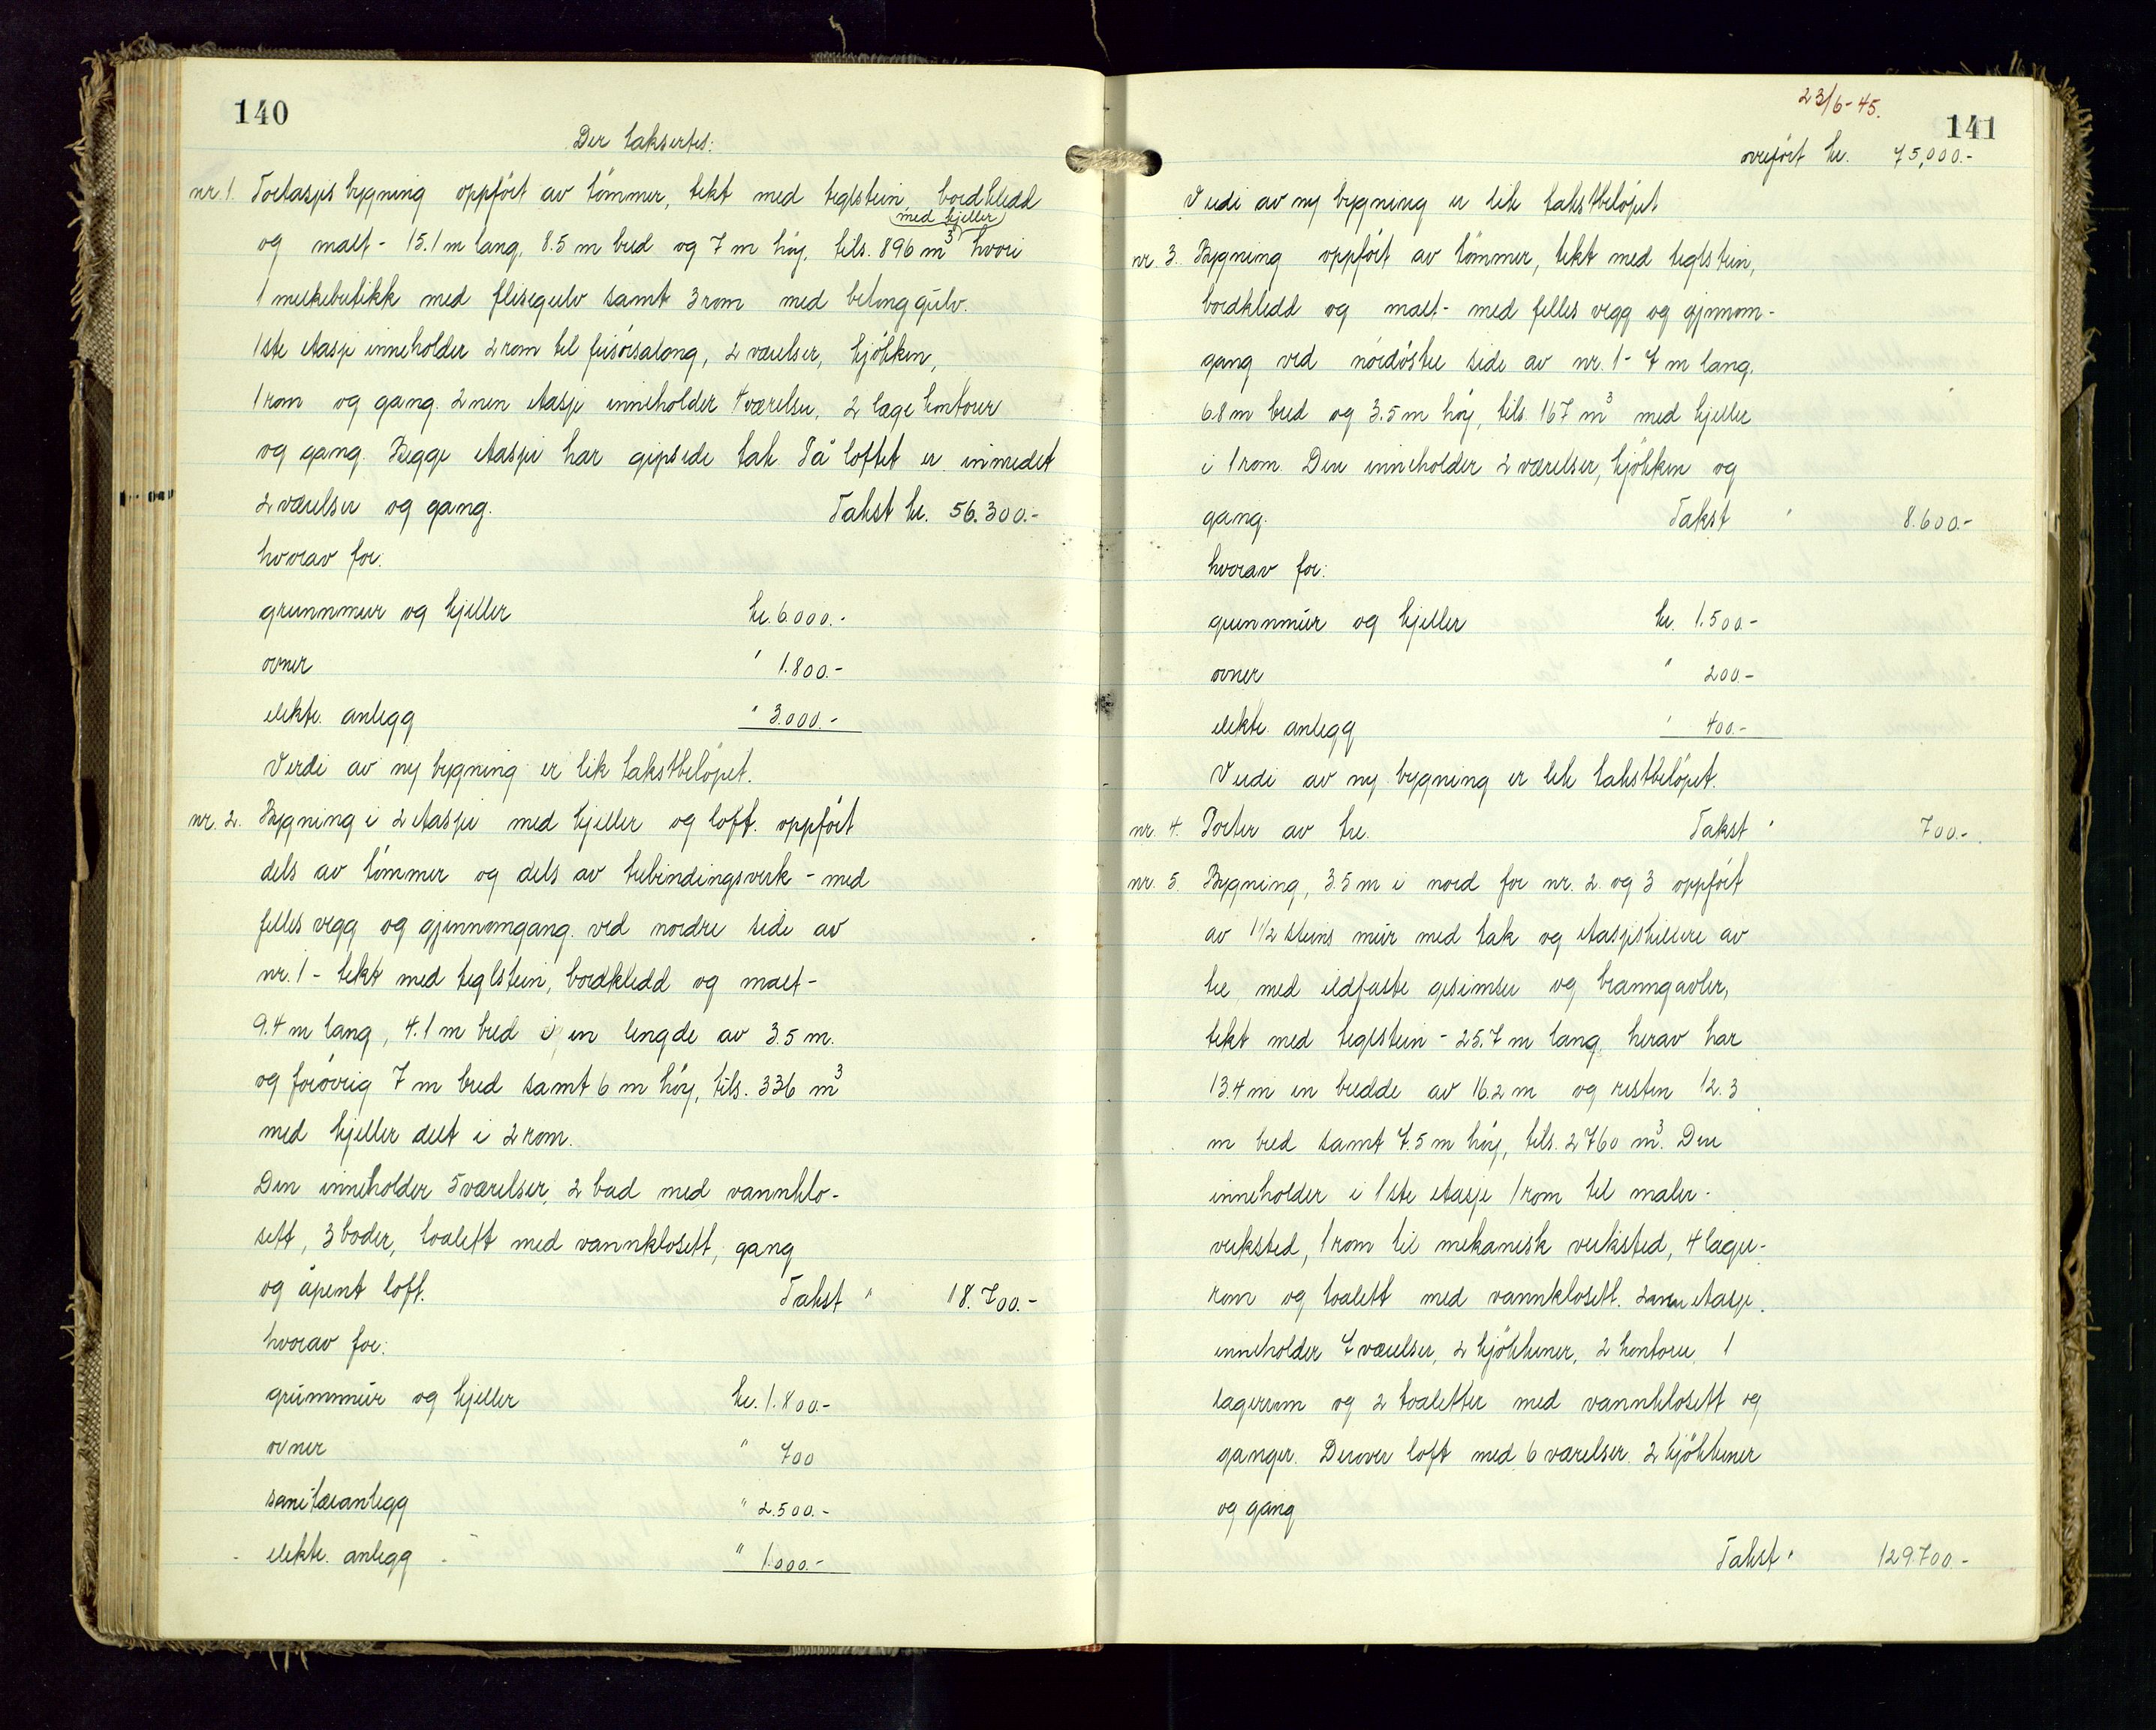 140
Der taksertes:
nr. 1. Toetasjes bygning oppført av tömmer, tekt med teglstein, bordkledd
med kjeller
og malt - 15.1 m lang, 8.5 m bred og 7 m høy, tils. 896 m³ hvori
1 melkebutikk med flisegulv samt 3 rom med betonggulv.
1ste etasje inneholder 2 rom til frisørsalong, 2 værelser, kjökken,
1 rom og gang. 2nen etasje inneholder 4 værelser, 2 lagekontorer
og gang. Begge etasjer har gipsede tak. På loftet er innredet
2 værelser og gang. Takst kr. 56.300.-
hvorav for:
grunnmur og kjeller kr. 6.000.-
ovner " 1.800.-
elektr. anlegg " 3.000.-
Verdi av ny bygning er lik takstbelöpet.
nr. 2. Bygning i 2 etasjer med kjeller og loft. oppfört
dels av tömmer og dels av trebindingsverk - med
felles vegg og gjennomgang ved nordre side av
nr. 1 - tekt med teglstein, bordkledd og malt -
9.4 m lang, 4.1 m bred i en lengde av 3.5 m.
og forøvrig 7 m bred samt 6 m høy, tils. 336 m³
med kjeller delt i 2 rom.
Den inneholder 5 værelser, 2 bad med vannklo-
sett, 3 boder, toalett med vannklosett, gang
og åpent loft. Takst " 18.700.-
hvorav for:
grunnmur og kjeller kr. 1.800.-
ovner " 700
sanitæranlegg " 2.500.-
elektr. anlegg " 1.000.-
23/6-45.
141
overført kr. 75,000.-
Verdi av ny bygning er lik takstbelöpet
nr. 3. Bygning oppfört av tömmer, tekt med teglstein,
bordkledd og malt - med felles vegg og gjennom-
gang ved nordöstre side av nr. 1 - 7 m lang,
6.8 m bred og 3.5 m høy, tils. 167 m³ med kjeller
i 1 rom. Den inneholder 2 værelser, kjökken og
gang. Takst " 8.600.-
hvorav for:
grunnmur og kjeller kr. 1.500.-
ovner " 200.-
elektr. anlegg " 400.-
Verdi av ny bygning er lik takstbelöpet.
nr. 4. Porter av tre. Takst " 700.-
nr. 5. Bygning, 3.5 m i nord for nr. 2. og 3 oppfört
av 1 1/2 steins mur med tak og etasjeskillere av
tre, med ildfaste gesimser og branngavler,
tekt med teglstein - 25.7 m lang, herav har
13.4 m en bredde av 16.2 m og resten 12.3
m bred samt 7.5 m høy, tils. 2760 m³. Den
inneholder i 1ste etasje 1 rom til maler-
verksted, 1 rom til mekanisk verksted, 4 lager-
rom og toalett med vannklosett. 2nen etasje
inneholder 7 værelser, 2 kjökkener, 2 kontorer, 1
lagerrom og 2 toaletter med vannklosett og
ganger. Derover loft med 6 værelser, 2 kjökkener
og gang
Takst " 129.700.-